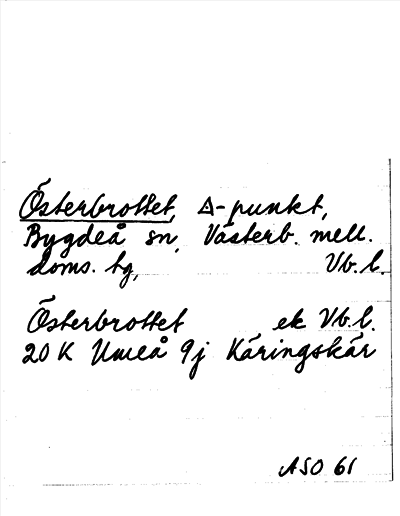 Österbrottet, △-punkt,
Bygdeå sn, Västerb. mell.
doms. tg, Vb.l.
Österbrottet ek Vb.l.
20 K Umeå 9j Käringskär
ASO 61